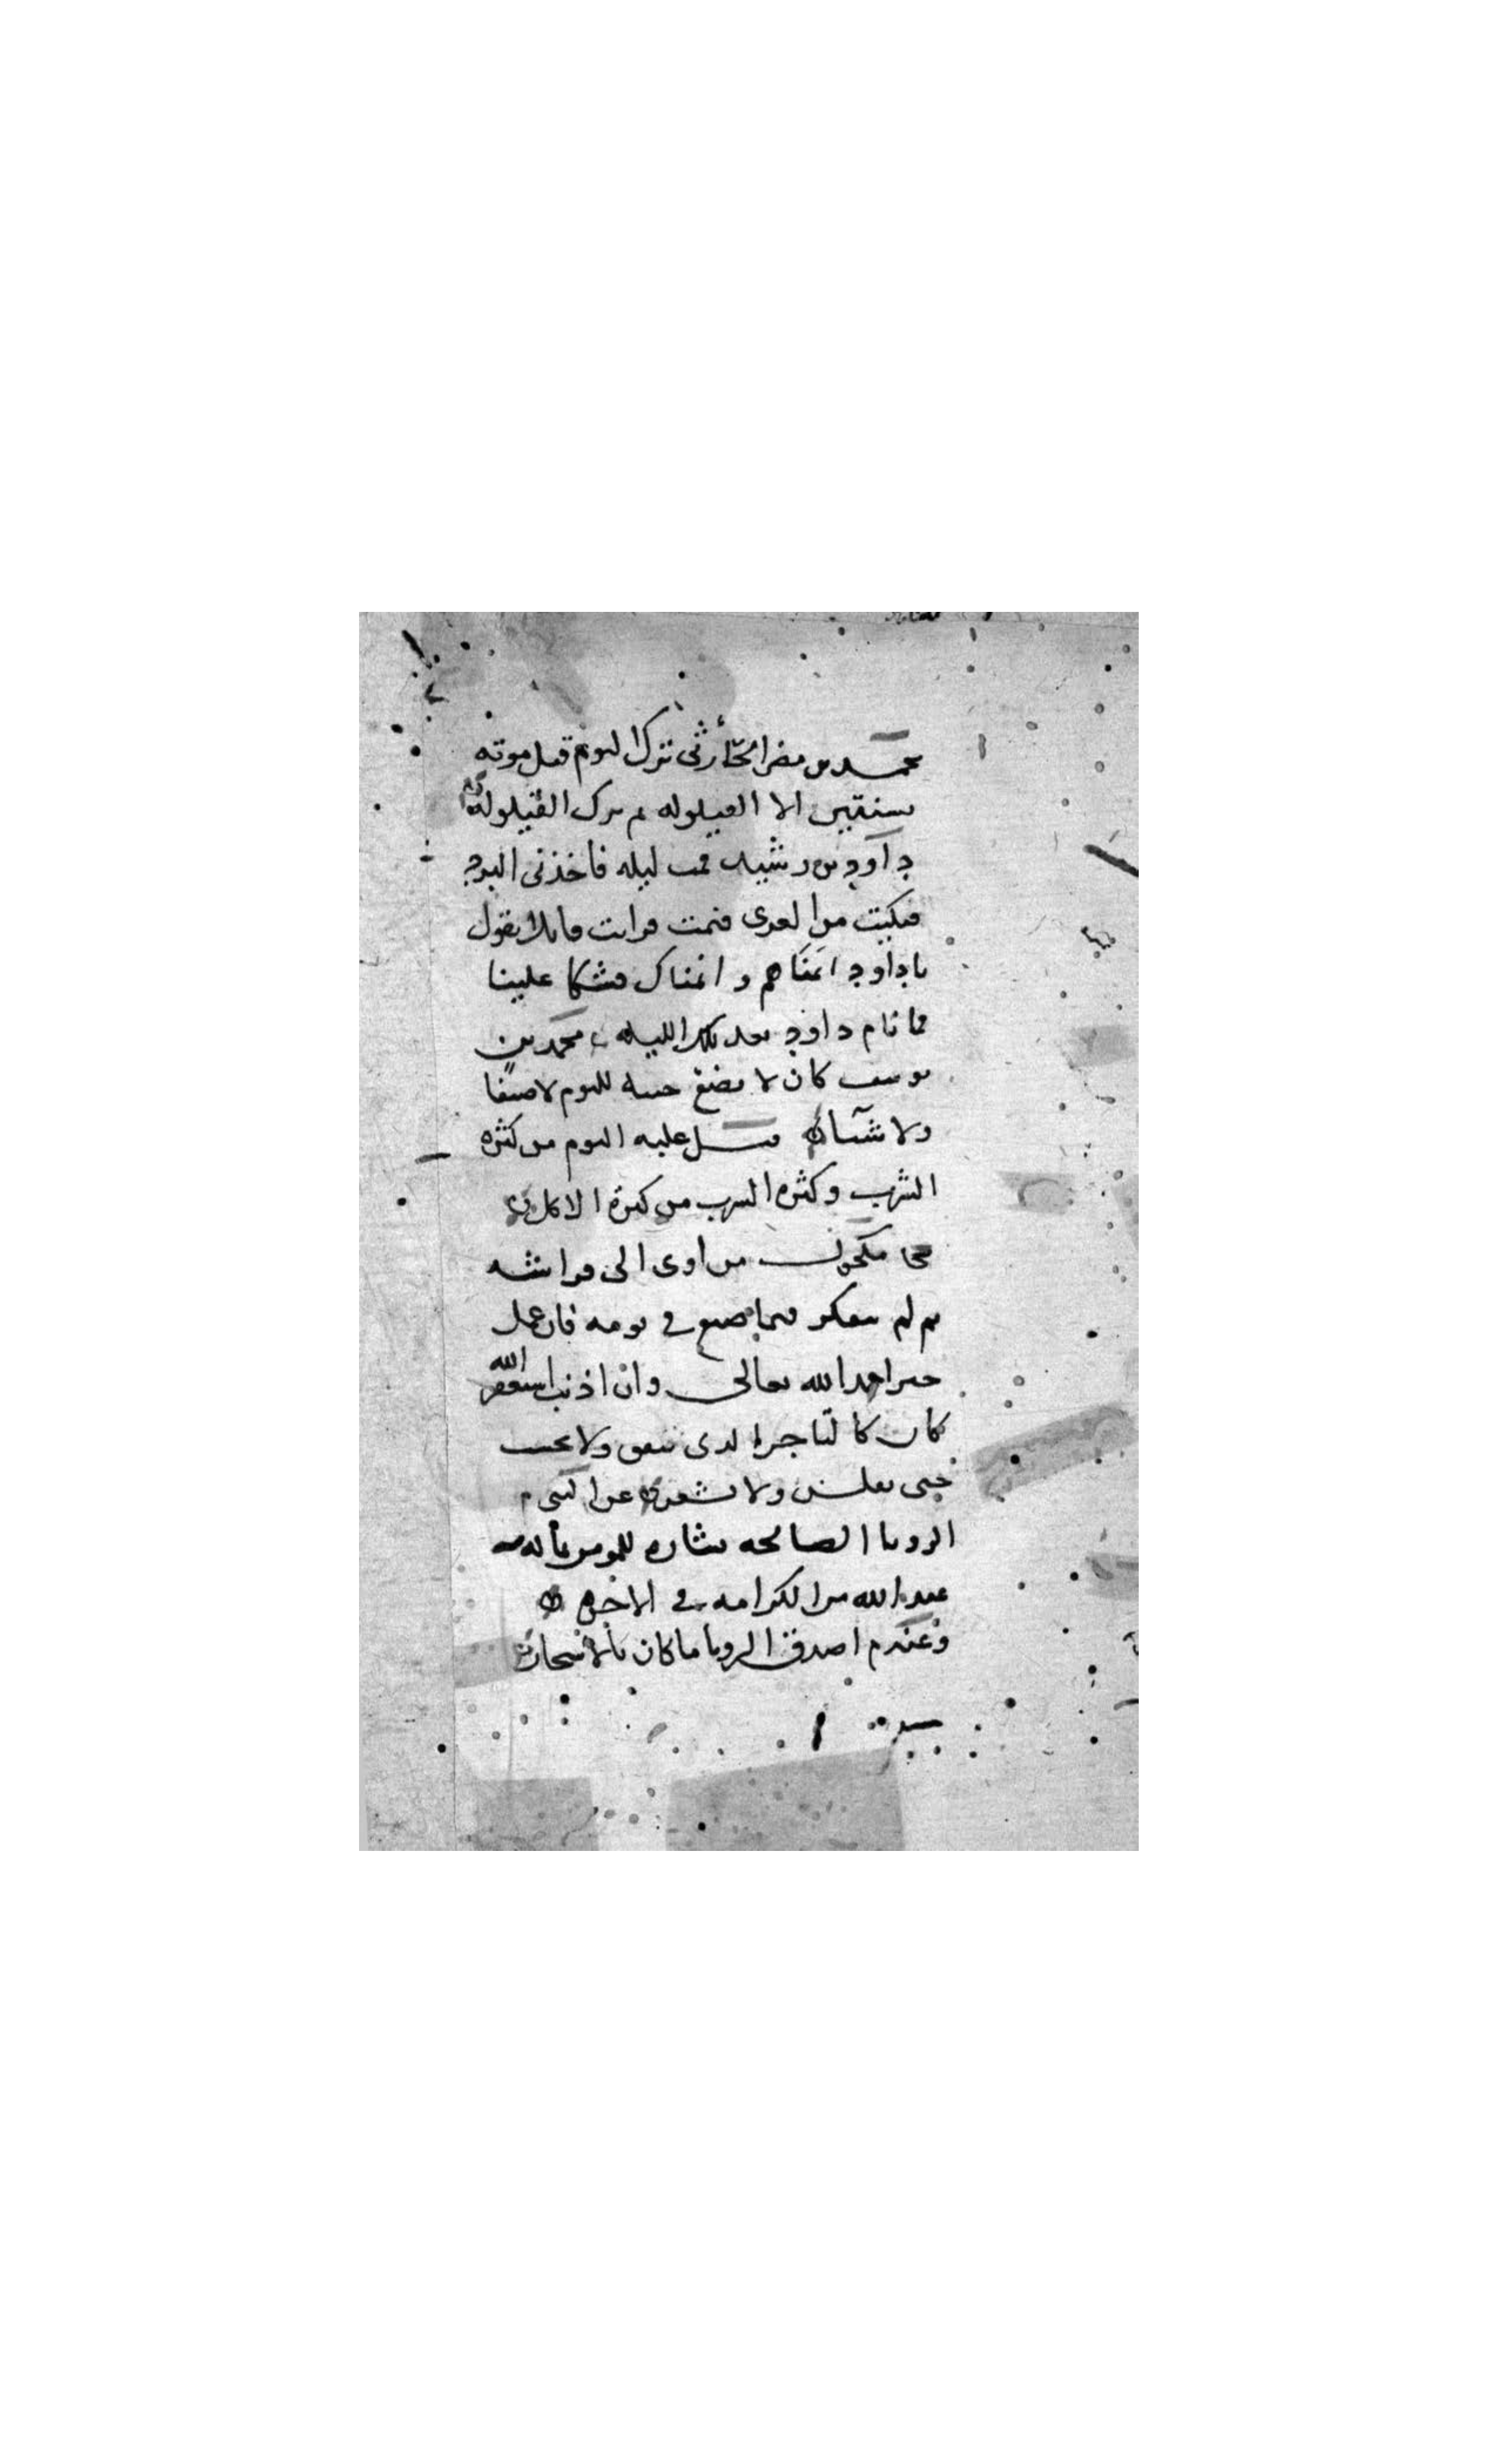 محمد بن نضر الحارثي ترك النوم قبل موته
بسنتين الا القيلوله ثم ترك القيلولة
داود بن رشيد قمت ليله فاخذني البرد
فبكيت من العرى فنمت فرايت قايلا يقول
يا داود انمناهم واقمناك فتبكي علينا
فما نام داود بعد تلك الليله محمد بن
يوسف كان لا يضع جنبه للنوم لا صيفا
ولا شتاء قيل عليه النوم من كثره
الشرب وكثره الشرب من كثرة الاكل
مكحول من اوى الى فراشه
ثم لم يتفكر فيما صنع في يومه فان عمل
خيرا حمد الله تعالى وان اذنب استغفر الله
كان كالتاجر الذي ينفق ولا يحسب
حتى يفلس ولا يشعر
الرويا الصالحه بشاره للمومن بماله
عند الله من الكرامه في الاخرة
وعندم اصدق الرويا ما كان بالاسحار